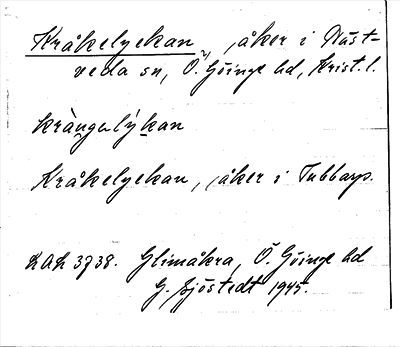 Kråkelyckan, åker i Näst-
veda sn, Ö. Göinge hd, Krist. l.
Kråkelyckan, åker i Tubbarp.
LAL 3738. Glimåkra, Ö. Göinge hd
G. Sjöstedt 1945.